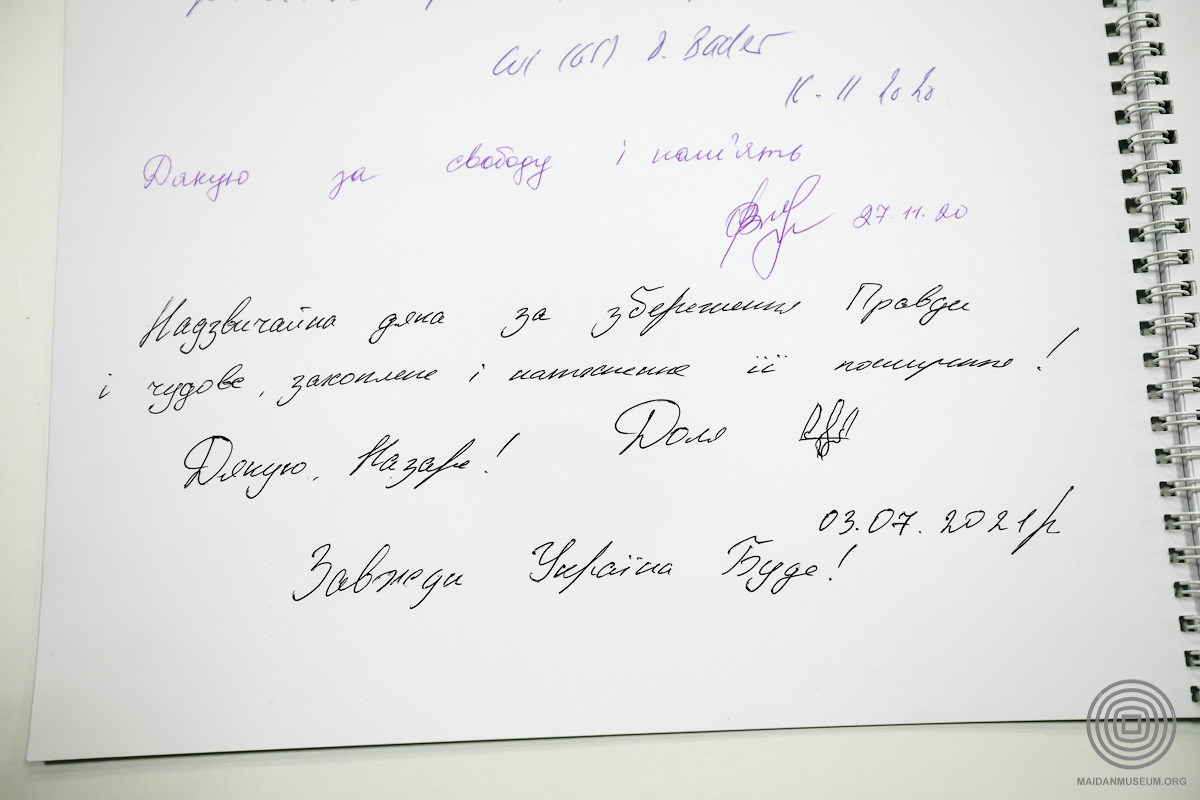 D. Bader
11 2020
Дякую за свободу і пам'ять
27.11.20
Надзвичайна дяка за збереження Правди
і чудове, захоплене і натхненне її поширення!
Дякую, Назаре! Доля
03.07.2021р
Завжди Україна Буде!
MAIDANMUSEUM.ORG